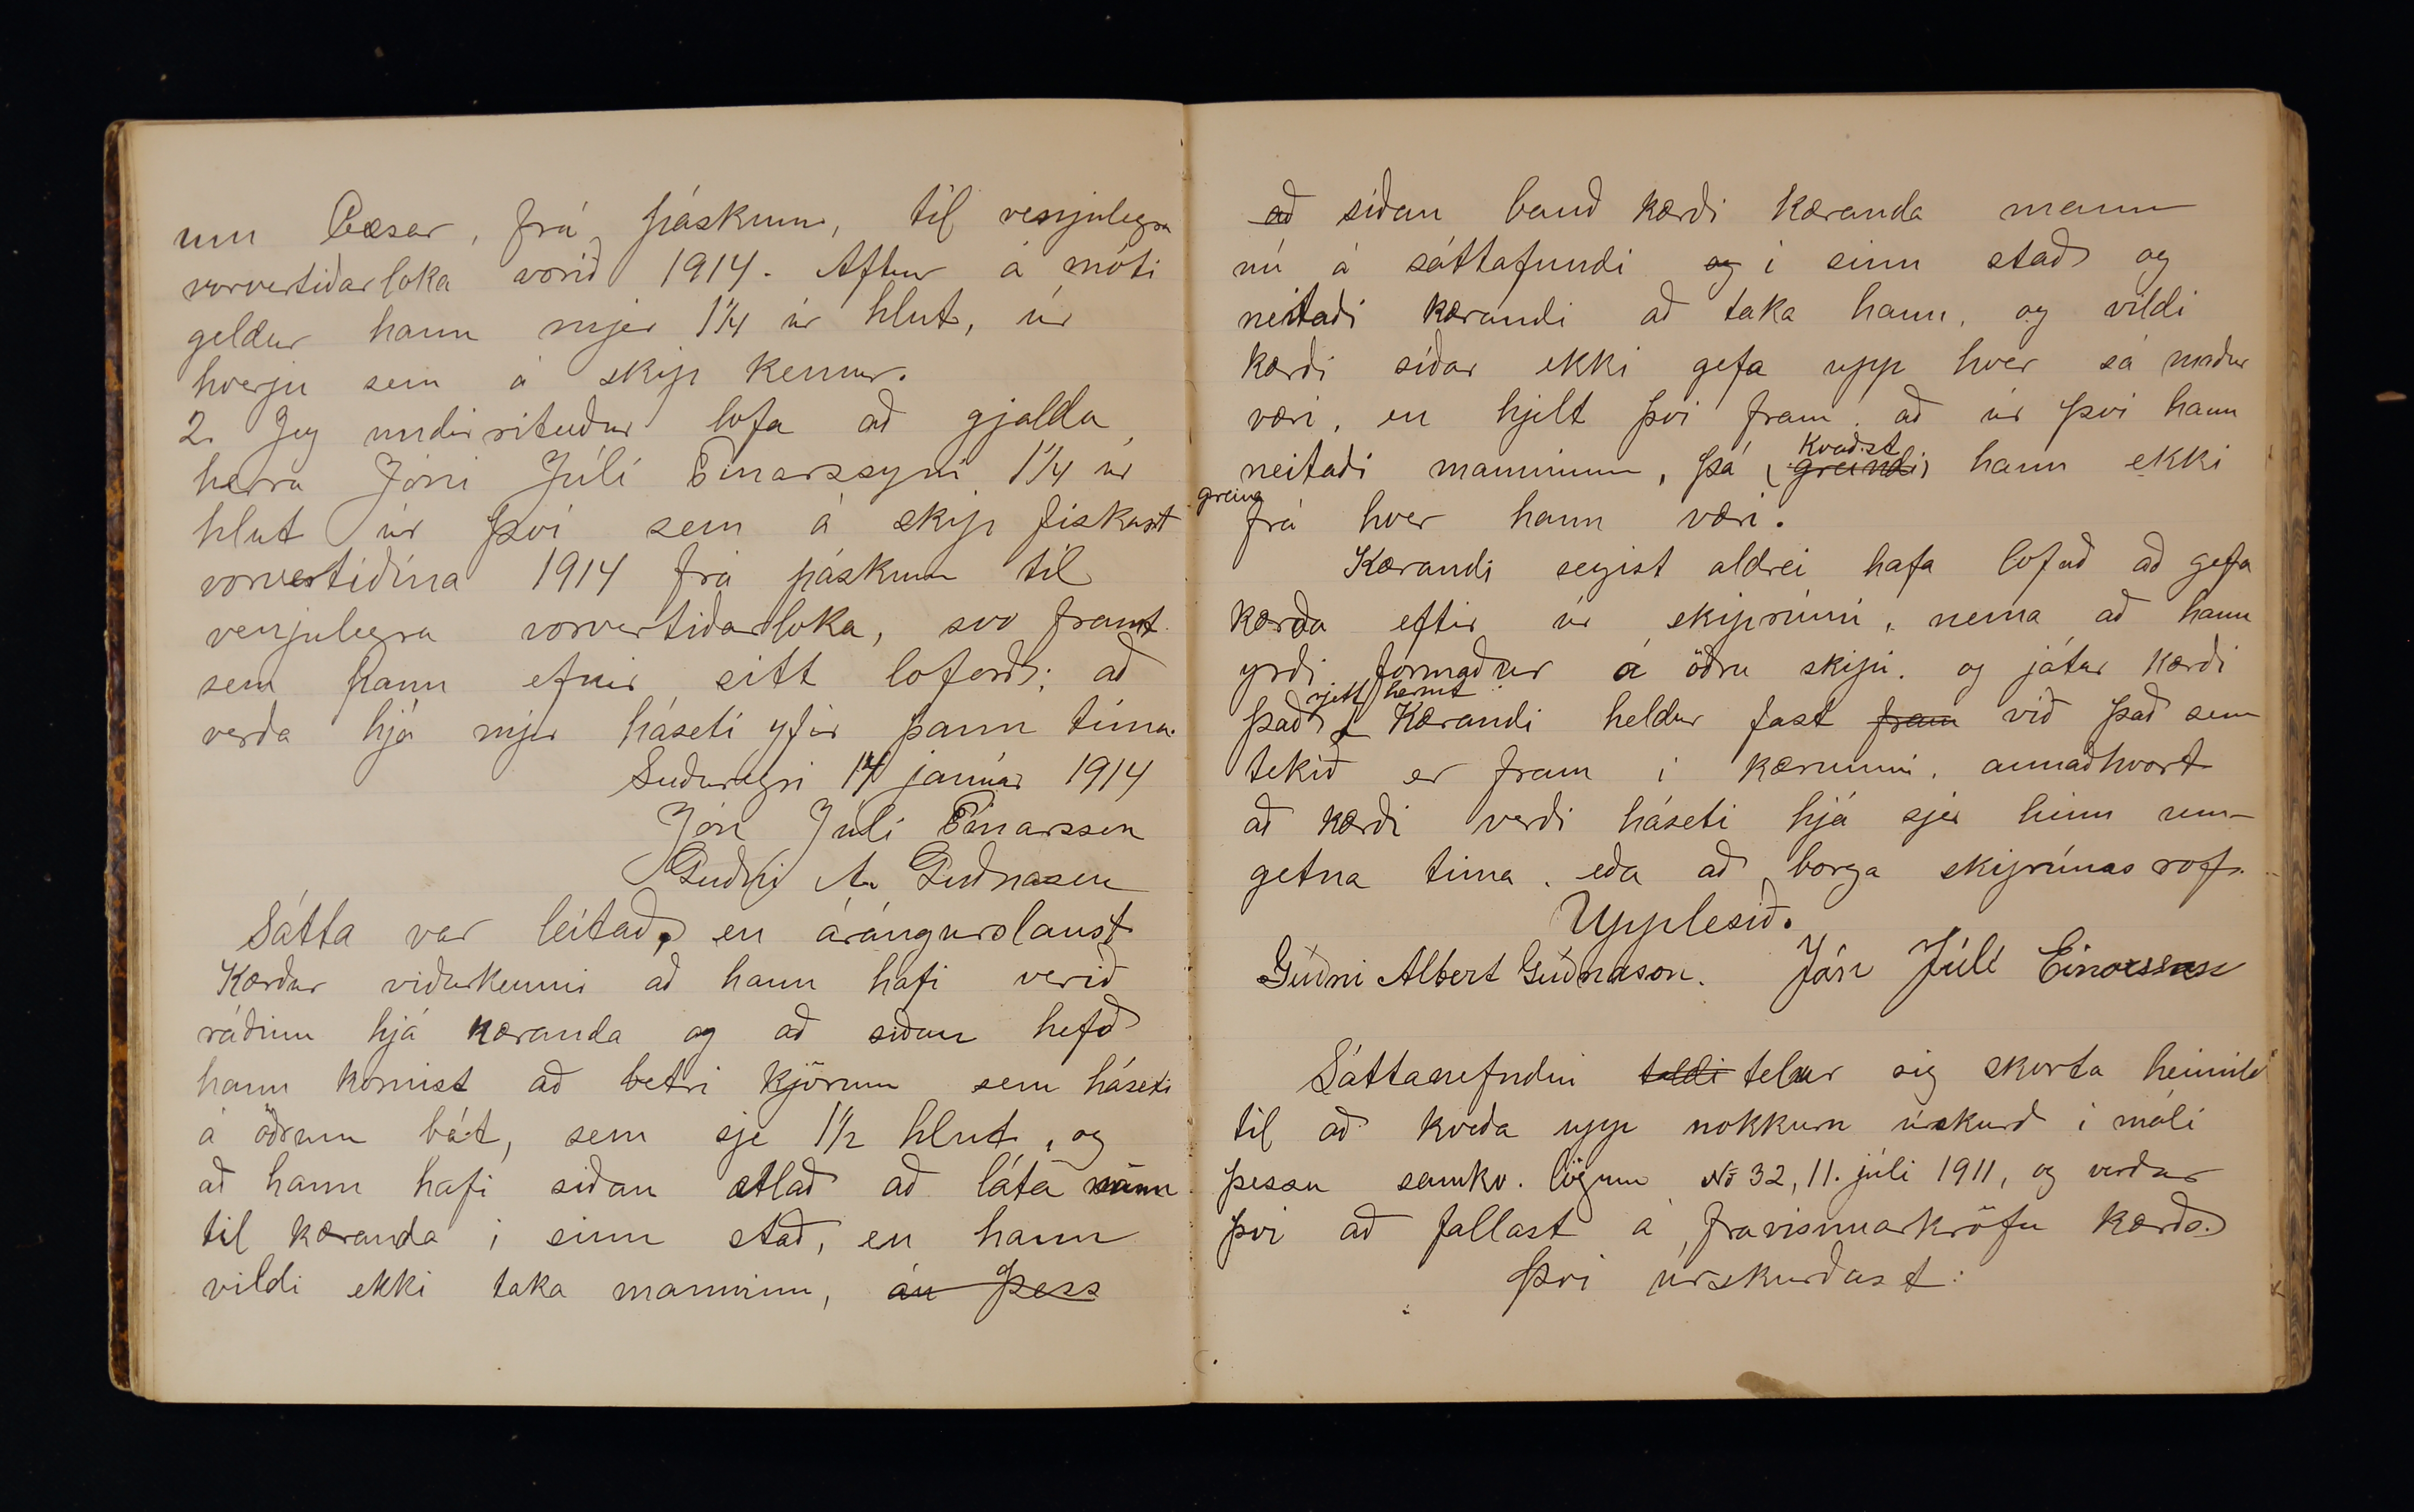 um Cæsar, frá páskum, til venjulegra
vorvertiðarloka vorið 1914. Aftur á móti
geldur hann mjer 1¼ úr hlut, úr
hverju sem á skip kemur.
2. Jeg undirritaður lofa að gjalda
herra Jóni Júlí Einarssyni 1¼ úr
hlut úr því sem á skip fiskast
vorvertíðina 1914 frá páskum til
venjulegra vorvertiðarloka, svo framt
sem hann efnir sitt loforð; að
verða hjá mjer háseti yfir þann tíma.
Suðureyri 14 janúar 1914
Jón Júlí Einarsson
Guðni A. Guðnason
Sátta var leitað, en árángurslaust
Kærður viðurkenni að hann hafi verið
ráðinn hjá kæranda og að siðan hefð
hann komist að betri kjörum sem háseti
á öðrum bát, sem sje 1½ hlut, og
að hann hafi siðan ætlað að láta mann
til kæranda i sinn stað, en hann
vildi ekki taka manninn, án þess
að siðan bauð kærði kæranda mann
nú á sáttafundi og i sinn stað og
neitaði kærandi að taka hann, og vildi
kærði síðar ekki gefa upp hver sá maður
væri, en hjelt því fram, að úr því hann
neitaði manninum, þá greindi kvaðst hann ekki
greina frá hver hann væri.
Kærandi segist aldrei hafa lofað að gefa
kærða eftir úr skiprúmi, nema að hann
yrði formaður á öðru skipi, og játar kærði
það rjett hermt. Kærandi heldur fast fram við það sem
tekið er fram i kærunni, annaðhvort
að kærði verði háseti hjá sjer hinn um-
getna tima, eða að borga skiprúmsrof.
Upplesið.
Guðni Albert Guðnason. Jón Júlí Einarsson
Sáttanefndin taldi telur sig skorta heimild
til að kveða upp nokkurn úrskurð i máli
þessu samkv. lögum No 32, 11. júlí 1911, og verður
því að fallast á frávisunarkröfu kærða.
Því úrskurðast: